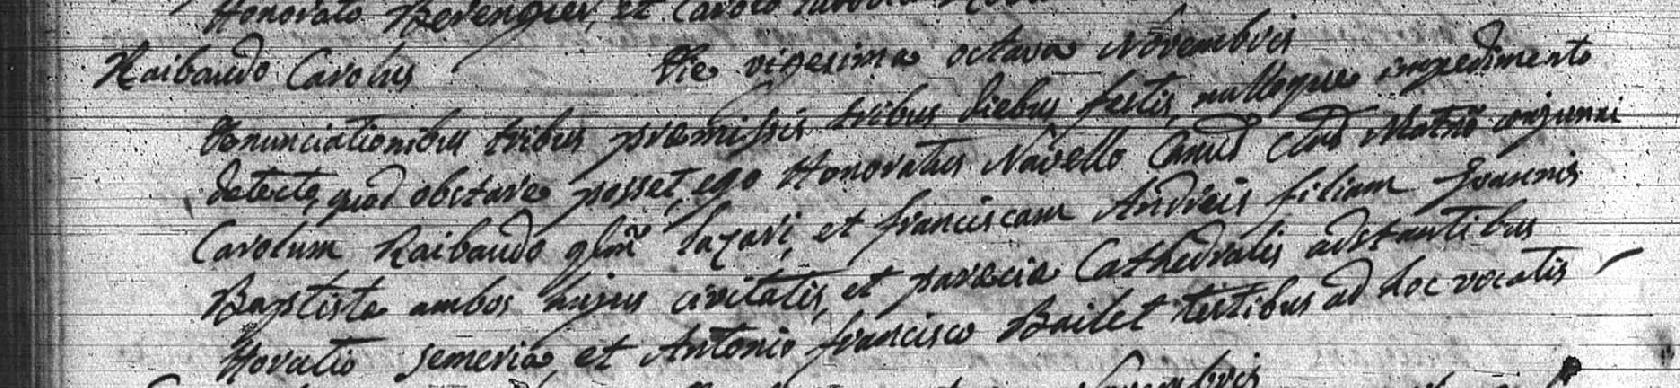 Honorato Berengier, et Carolo
Raibaudo Carolus Die vigesima octava Novembris
Denunciationibus tribus premissis tribus diebus festis, nulloque impedimento
detecto, quod obstare posset, ego Honoratus Navello Canus Matrio conjunxi
Carolum Raibaudo qm Lazari, et franciscam Andreis filiam Joannis
Baptistæ ambos hujus civitatis, et parœciæ Cathedralis adstantibus
Horatio Semeria, et Antonio francisco Bailet testibus ad hoc vocatis
Novembris